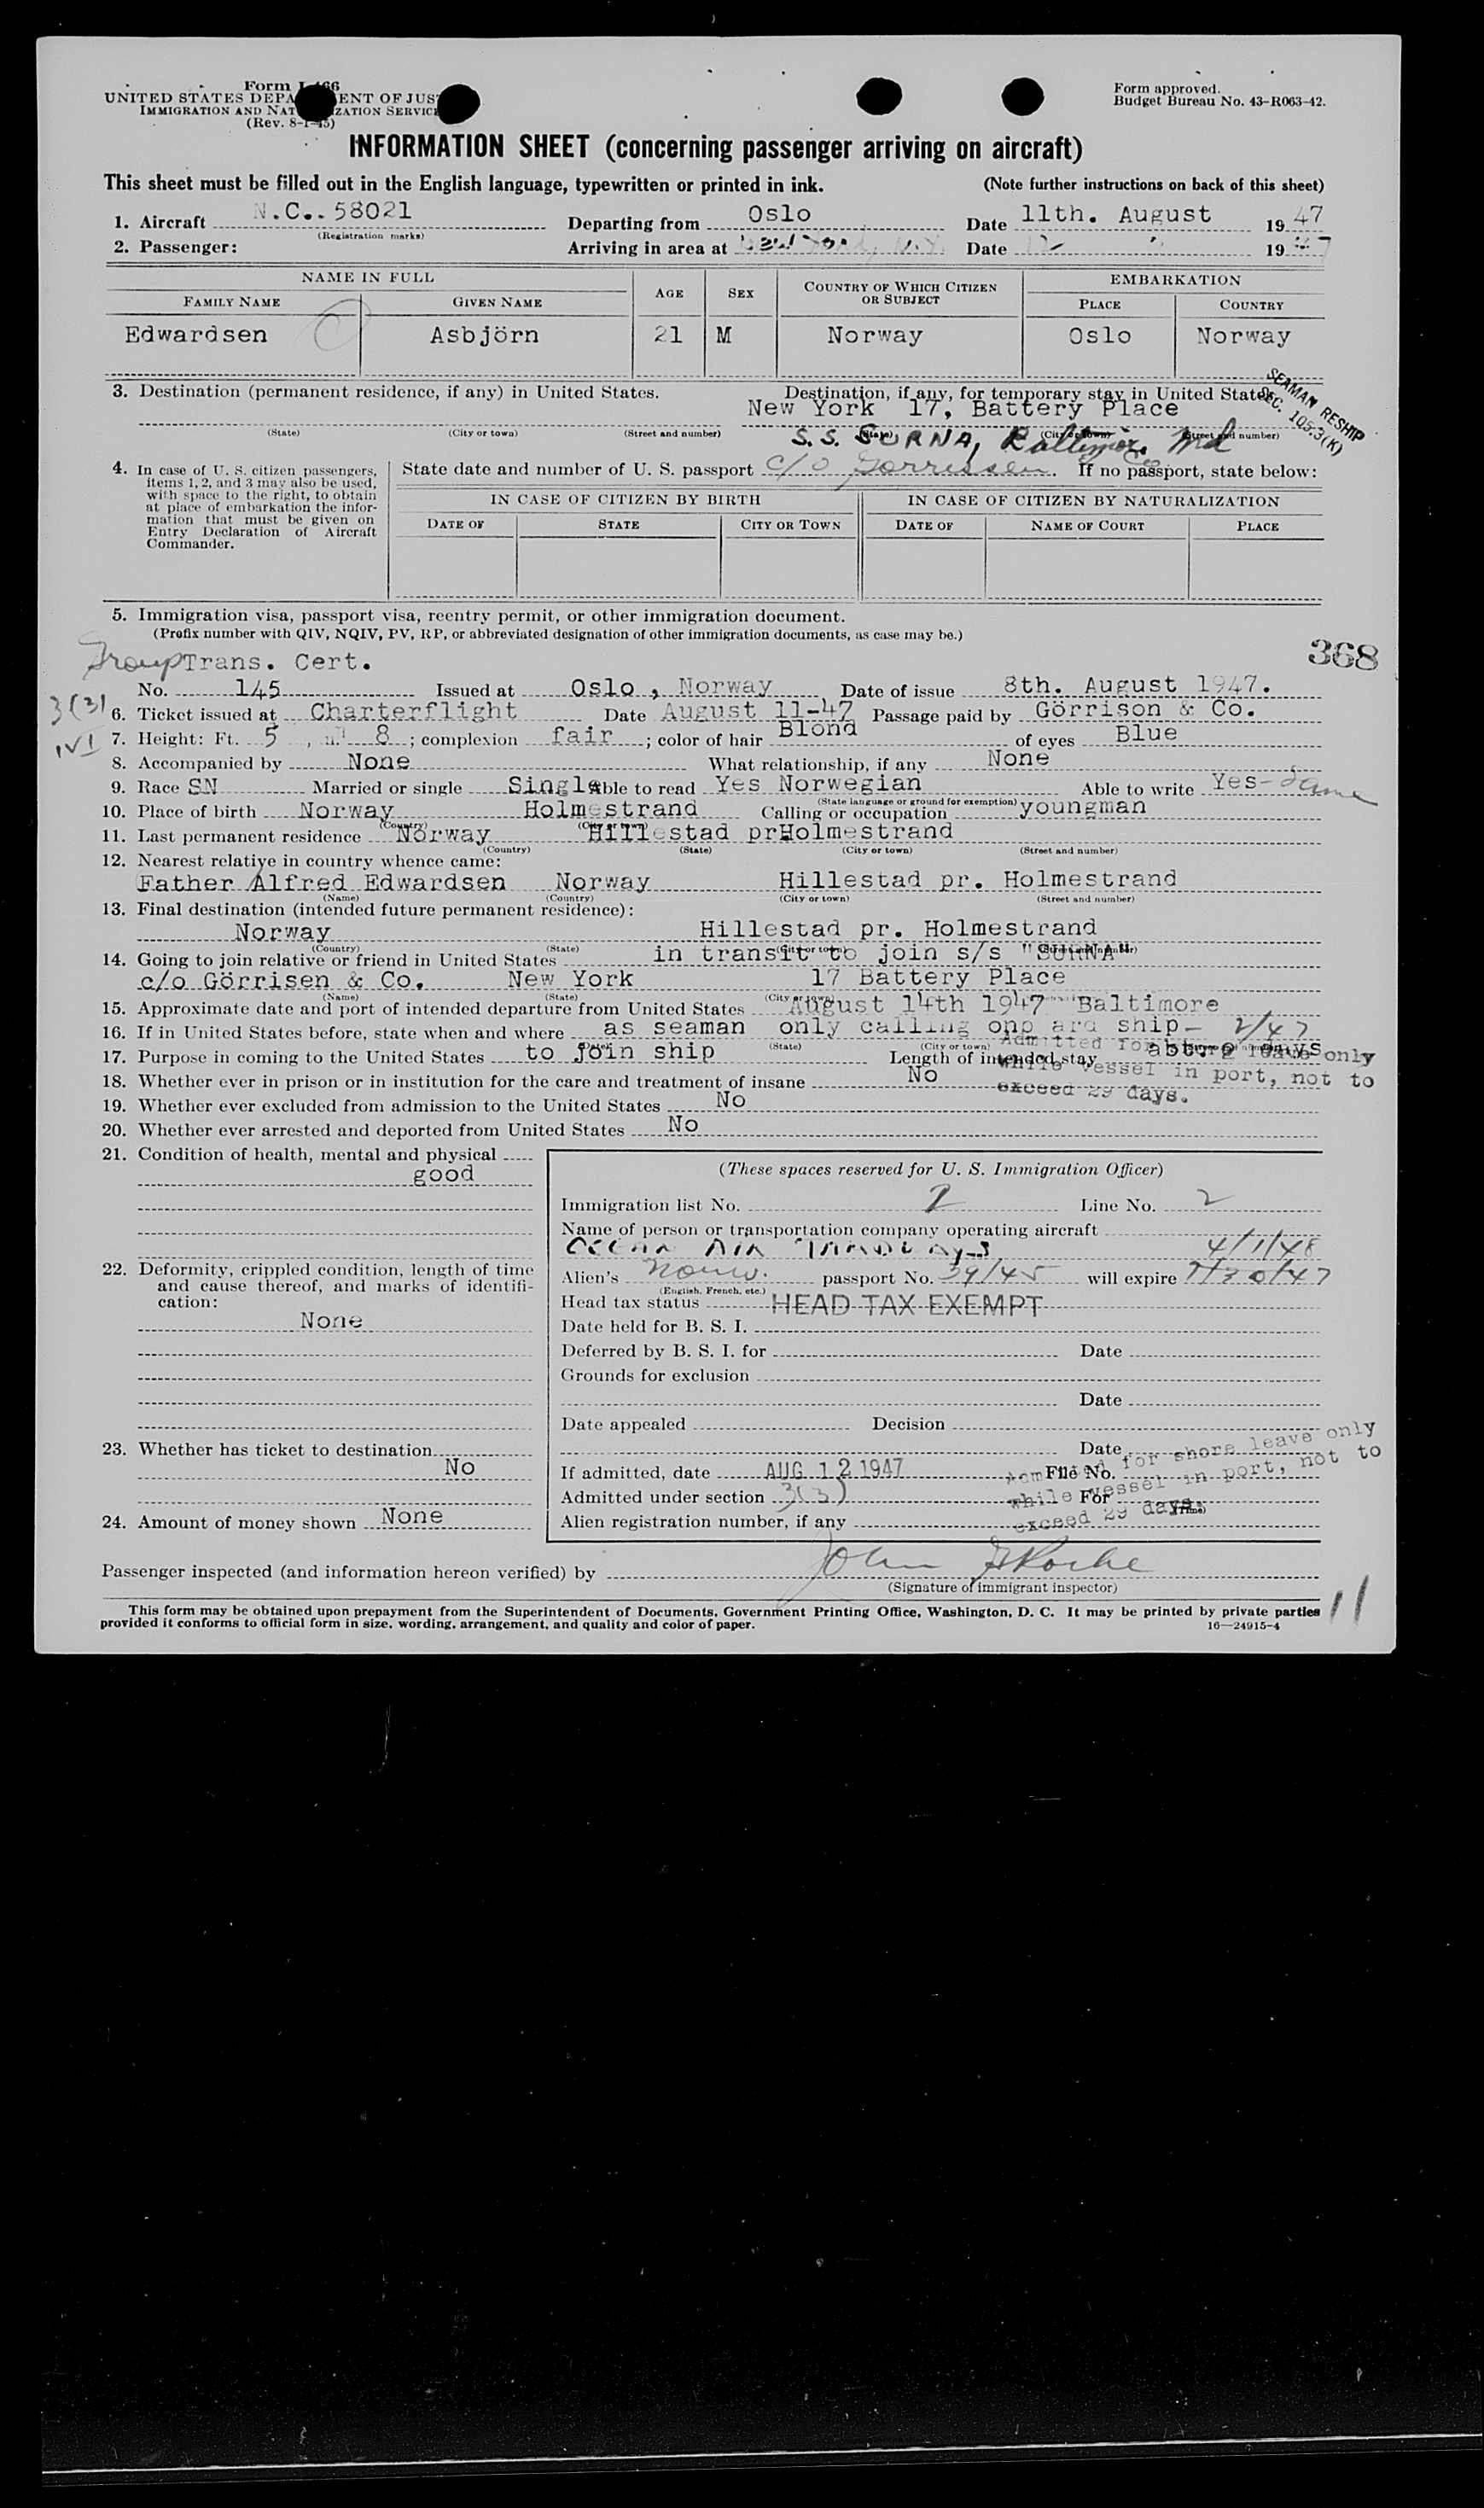 Form I-466
UNITED STATES DEPARTMENT OF JUSTICE
IMMIGRATION AND NATURALIZATION SERVICE
(Rev. 8-1-45)
Form approved.
Budget Bureau No. 43-R063-42.
INFORMATION SHEET (concerning passenger arriving on aircraft)
This sheet must be filled out in the English language, typewritten or printed in ink. (Note further instructions on back of this sheet)
1. Aircraft N.C.. 58021 Departing from Oslo Date 11th. August 1947
(Registration marks)
2. Passenger: Arriving in area at New York, N.Y. Date 12 " 1947
NAME IN FULL AGE SEX COUNTRY OF WHICH CITIZEN OR SUBJECT EMBARKATION
FAMILY NAME GIVEN NAME PLACE COUNTRY
Edwardsen Asbjörn 21 M Norway Oslo Norway
SEAMAN RESHIP
SEC. 105.3(K)
3. Destination (permanent residence, if any) in United States. Destination, if any, for temporary stay in United States
New York 17, Battery Place
(State) (City or town) (Street and number) (State) (City or town) (Street and number)
S.S. SURNA, Baltimore Md
4. In case of U. S. citizen passengers, items 1, 2, and 3 may also be used, with space to the right, to obtain at place of embarkation the information that must be given on Entry Declaration of Aircraft Commander.
State date and number of U. S. passport c/o Gorrissen. Co If no passport, state below:
IN CASE OF CITIZEN BY BIRTH IN CASE OF CITIZEN BY NATURALIZATION
DATE OF STATE CITY OR TOWN DATE OF NAME OF COURT PLACE
5. Immigration visa, passport visa, reentry permit, or other immigration document.
(Prefix number with QIV, NQIV, PV, RP, or abbreviated designation of other immigration documents, as case may be.)
368
Group Trans. Cert.
No. 145 Issued at Oslo, Norway Date of issue 8th. August 1947.
3(3)
6. Ticket issued at Charterflight Date August 11-47 Passage paid by Görrison & Co.
7. Height: Ft. 5, in. 8; complexion fair; color of hair Blond of eyes Blue
8. Accompanied by None What relationship, if any None
9. Race SN Married or single Single Able to read Yes Norwegian Able to write Yes-Same
(State language or ground for exemption)
10. Place of birth Norway Holmestrand Calling or occupation youngman
(Country) (City or town)
11. Last permanent residence Norway Hillestad prHolmestrand
(Country) (State) (City or town) (Street and number)
12. Nearest relative in country whence came:
Father Alfred Edwardsen Norway Hillestad pr. Holmestrand
(Name) (Country) (City or town) (Street and number)
13. Final destination (intended future permanent residence):
Norway Hillestad pr. Holmestrand
(Country) (State) (City or town) (Street and number)
14. Going to join relative or friend in United States in transit to join s/s "SURNA"
c/o Görrisen & Co. New York 17 Battery Place
(Name) (State) (City or town)
15. Approximate date and port of intended departure from United States August 14th 1947 Baltimore
16. If in United States before, state when and where as seaman only calling onboard ship - 2/47
(State) (City or town)
17. Purpose in coming to the United States to join ship Length of intended stay abt. days
Admitted for shore leave only
while vessel in port, not to
exceed 29 days.
18. Whether ever in prison or in institution for the care and treatment of insane No
19. Whether ever excluded from admission to the United States No
20. Whether ever arrested and deported from United States No
21. Condition of health, mental and physical
good
22. Deformity, crippled condition, length of time and cause thereof, and marks of identification:
None
23. Whether has ticket to destination
No
24. Amount of money shown None
(These spaces reserved for U. S. Immigration Officer)
Immigration list No. 2 Line No. 2
Name of person or transportation company operating aircraft
OCEAN AIR TRADEWAYS 4/1/48
Alien's Norw. passport No. 39/45 will expire 7/30/47
(English, French, etc.)
Head tax status HEAD TAX EXEMPT
Date held for B. S. I.
Deferred by B. S. I. for Date
Grounds for exclusion
Date
Date appealed Decision
Date
If admitted, date AUG 12 1947 File No.
Admitted under section 3(3) For
(Time)
Alien registration number, if any
Admitted for shore leave only
while vessel in port, not to
exceed 29 days.
Passenger inspected (and information hereon verified) by John Roche
(Signature of immigrant inspector)
This form may be obtained upon prepayment from the Superintendent of Documents, Government Printing Office, Washington, D. C. It may be printed by private parties
provided it conforms to official form in size, wording, arrangement, and quality and color of paper. 16—24915-4
11